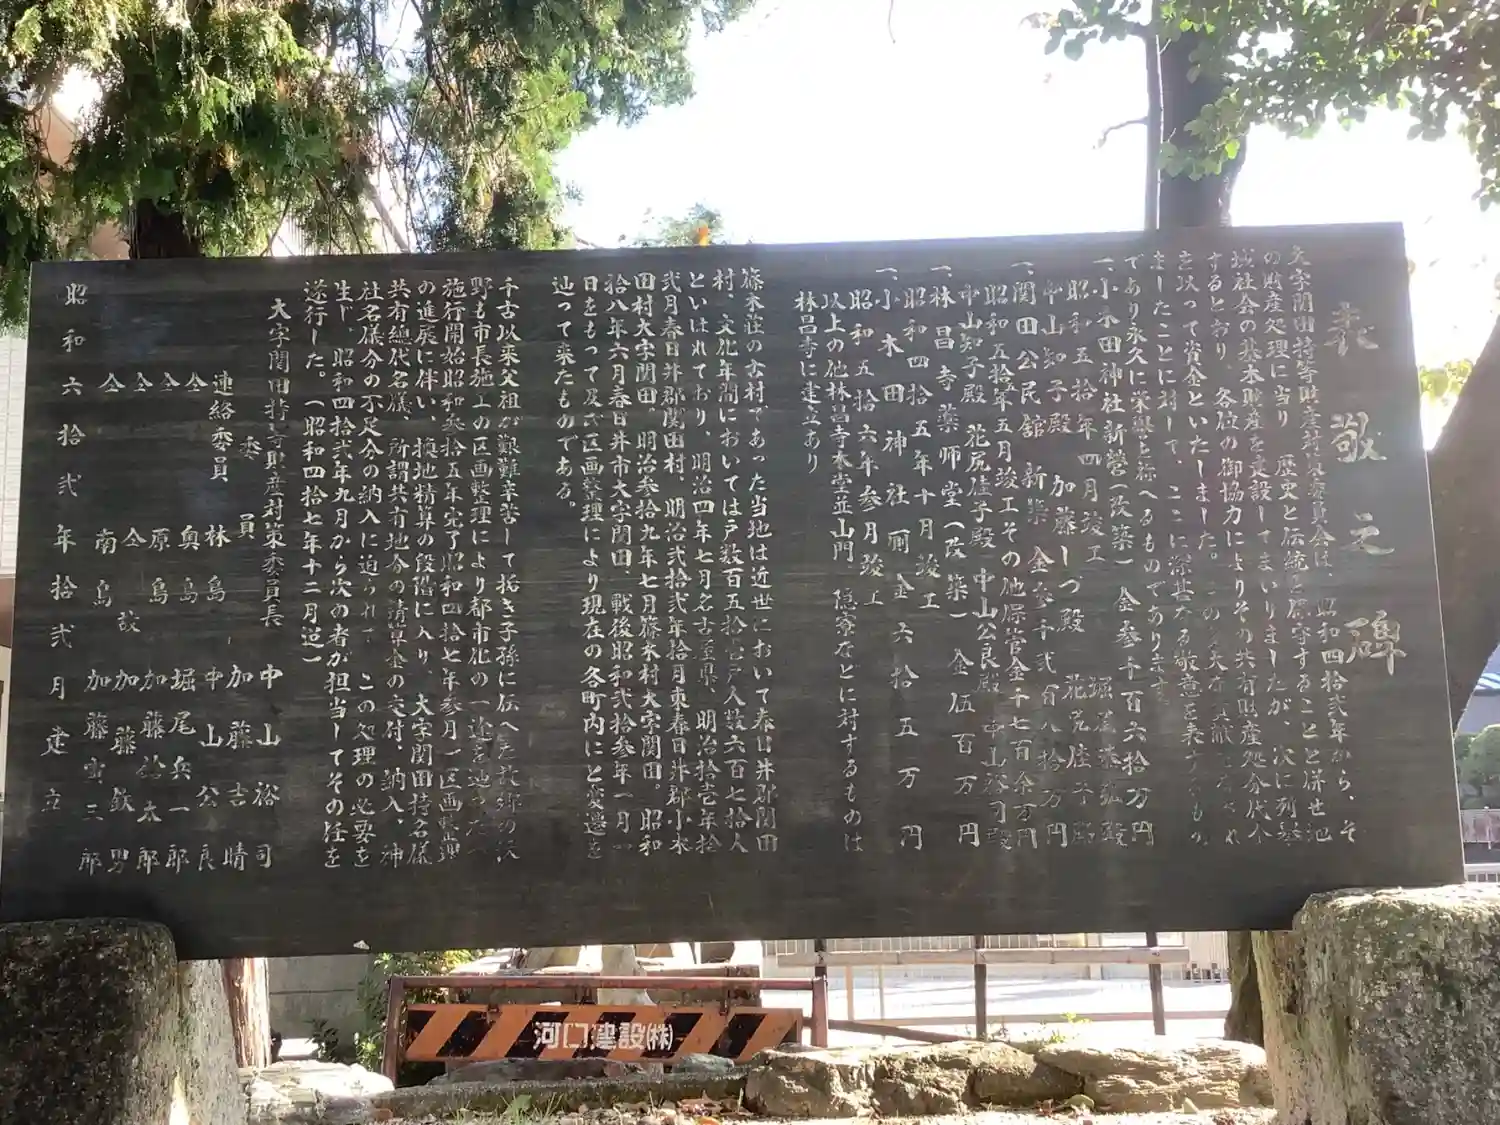 表敬之碑
大字関田持等財産対策委員会は、昭和四拾弐年から、そ
の財産処理に当り 歴史と伝統を保守することと併せ地
域社会の基本財産を建設してまいりましたが、次に列挙
するとおり、各位の御協力によりその共有財産処分代金
を以って資金といたしました。
ましたことに対して、ここに深甚なる敬意を表するもの
であり永久に栄誉を称へるものであります
一、小木田神社新営(改築) 金参千百六拾万円
昭和五拾年四月竣工
中山知子殿 加藤しづ殿 花尻佳子殿
一、関田公民館 新築 金参千弐百八拾万円
昭和五拾年五月竣工その他保管金千七百余万円
中山知子殿 花尻佳子殿 中山公良殿 中山裕司殿
一、林昌寺薬师堂(改築) 金伍百万円
昭和四拾五年十月竣工
一、小木田神社 金六拾五万円
昭和五拾六年参月竣工
以上の他林昌寺本堂並山門 隠寮などに対するものは
林昌寺に建立あり
篠木荘の舎村であった当地は近世において春日井郡関田
村、文化年間においては戸数百五拾 戸人数六百七拾人
といはれており、明治四年七月名古屋県、明治拾壱年拾
弐月春日井郡関田村、明治弐拾弐年拾月東春日井郡小木
田村大字関田。明治参拾九年七月篠木村大字関田。昭和
拾八年六月春日井市大字関田、戦後昭和弐拾参年一月一
日をもって及び区画整理により現在の各町内にと変遷を
辿って来たものである。
千古以来父祖が艱難辛苦して拓き子孫に伝へた
野も市長施工の区画整理により都市化の一途を辿
施行開始昭和参拾五年完了昭和四拾七年参月)区画整理
の進展に伴い、換地精算の段階に入り、大字関田持名儀
共有總代名儀、所謂共有地分の清算金の交付、納入、神
社名儀分の不足分の納入に迫られ、この処理の必要を
生じ、昭和四拾弐年九月から次の者が担当してその任を
遂行した。(昭和四拾七年十二月迄)
大字関田持等財産対策委員長 中山裕司
委員 加藤吉晴
連絡委員 林島 中山公良
仝 奥島 堀尾兵一郎
仝 原島 加藤 太郎
仝 仝 故 加藤鉄男
仝 南島 加藤 三郎
昭和六拾弐年拾弐月建立
河口建設(株)